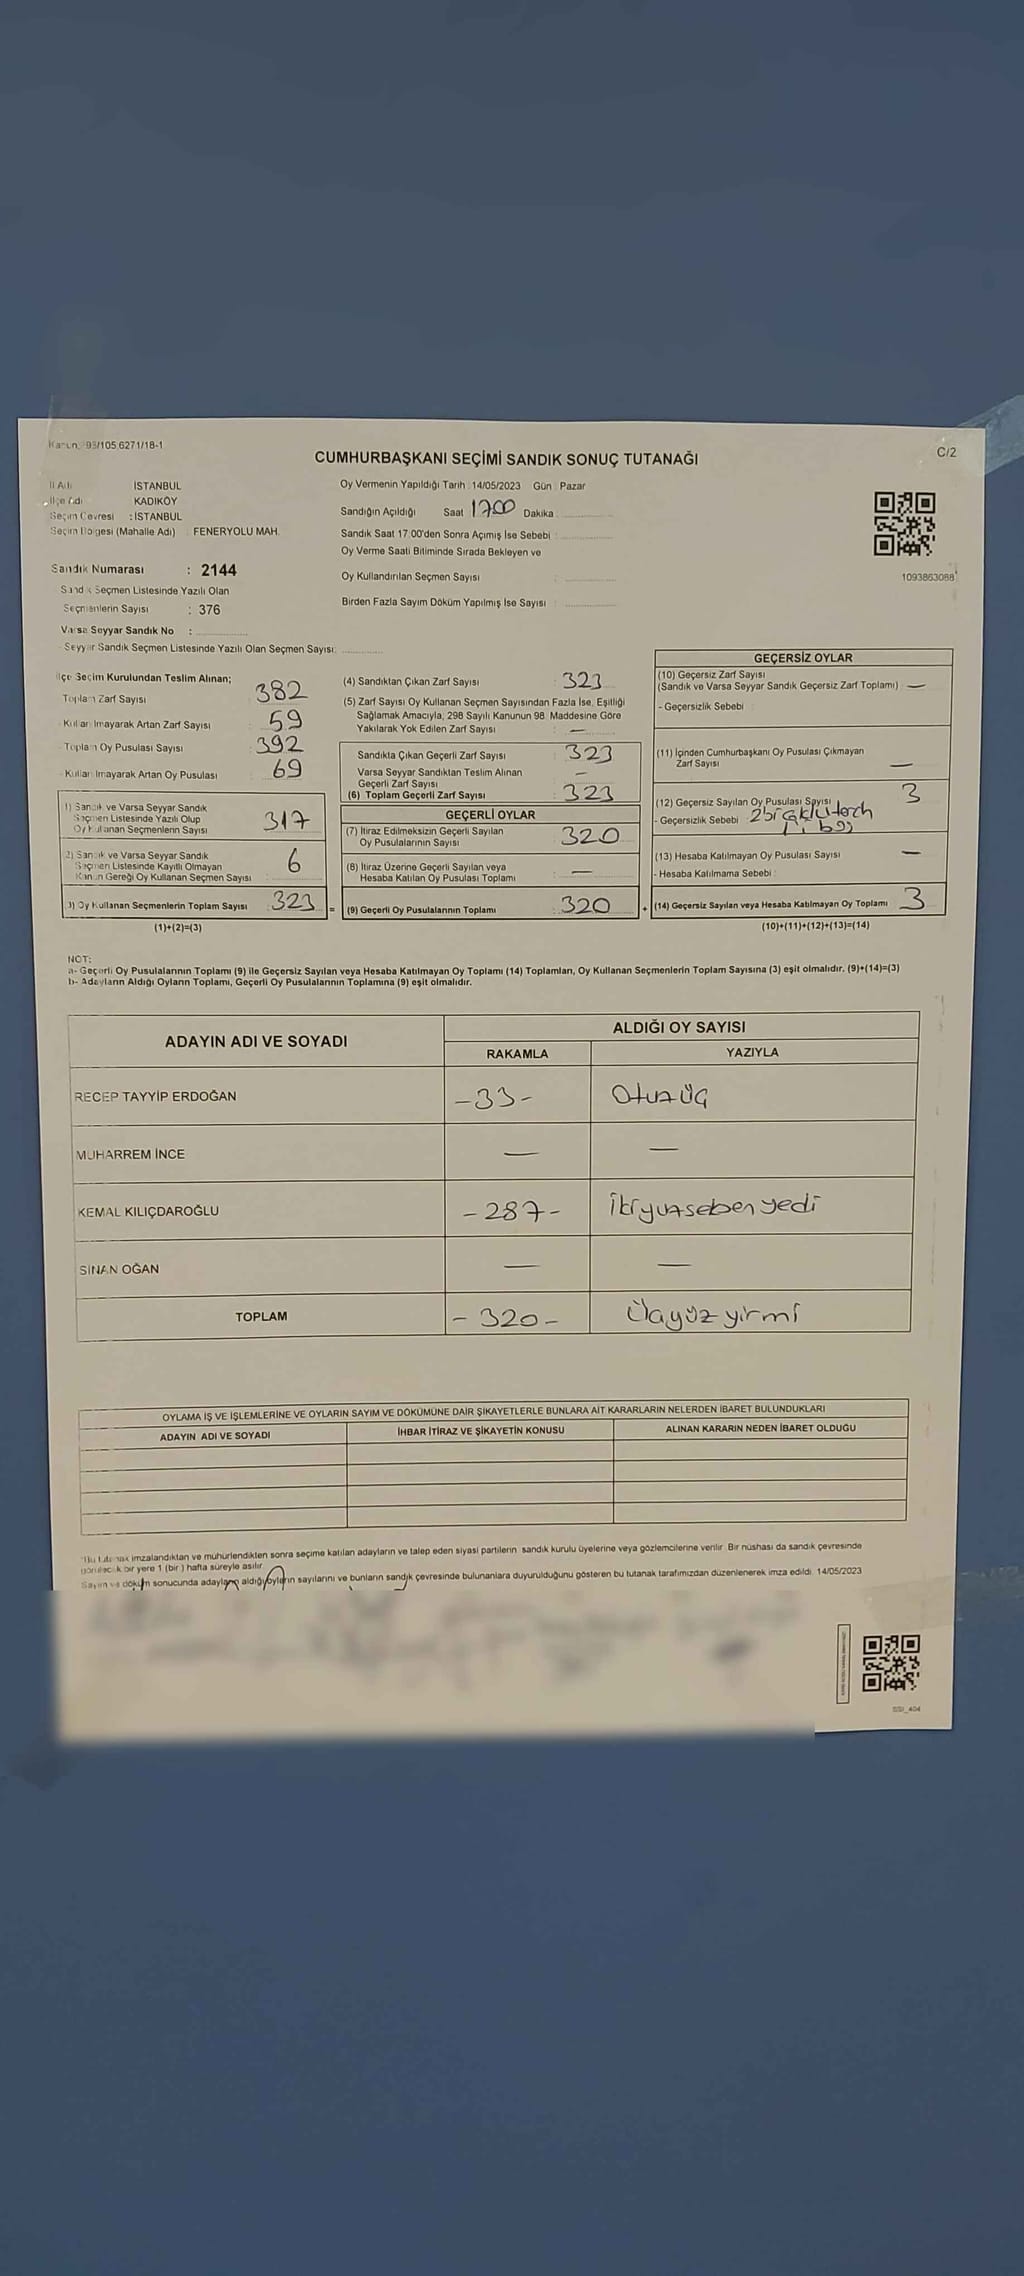 Kanun: 93/105,6271/18-1
C/2
CUMHURBAŞKANI SEÇİMİ SANDIK SONUÇ TUTANAĞI
İl Adı İSTANBUL
İlçe Adı KADIKÖY
Seçim Çevresi : İSTANBUL
Seçim Bölgesi (Mahalle Adı) FENERYOLU MAH.
Oy Vermenin Yapıldığı Tarih : 14/05/2023 Gün : Pazar
Sandığın Açıldığı Saat 1700 Dakika :
Sandık Saat 17:00'den Sonra Açımış İse Sebebi :
Oy Verme Saati Bitiminde Sırada Bekleyen ve
Oy Kullandırılan Seçmen Sayısı :
Birden Fazla Sayım Döküm Yapılmış İse Sayısı :
1093863088
Sandık Numarası : 2144
Sandık Seçmen Listesinde Yazılı Olan
Seçmenlerin Sayısı : 376
Varsa Seyyar Sandık No :
- Seyyar Sandık Seçmen Listesinde Yazılı Olan Seçmen Sayısı:
İlçe Seçim Kurulundan Teslim Alınan;
Toplam Zarf Sayısı : 382
- Kullanılmayarak Artan Zarf Sayısı : 59
- Toplam Oy Pusulası Sayısı : 392
- Kullanılmayarak Artan Oy Pusulası : 69
1) Sandık ve Varsa Seyyar Sandık
Seçmen Listesinde Yazılı Olup
Oy Kullanan Seçmenlerin Sayısı : 317
2) Sandık ve Varsa Seyyar Sandık
Seçmen Listesinde Kayıtlı Olmayan
Kanun Gereği Oy Kullanan Seçmen Sayısı : 6
3) Oy Kullanan Seçmenlerin Toplam Sayısı : 323 =
(1)+(2)=(3)
(4) Sandıktan Çıkan Zarf Sayısı : 323
(5) Zarf Sayısı Oy Kullanan Seçmen Sayısından Fazla İse, Eşitliği
Sağlamak Amacıyla, 298 Sayılı Kanunun 98. Maddesine Göre
Yakılarak Yok Edilen Zarf Sayısı : —
Sandıkta Çıkan Geçerli Zarf Sayısı : 323
Varsa Seyyar Sandıktan Teslim Alınan
Geçerli Zarf Sayısı : —
(6) Toplam Geçerli Zarf Sayısı : 323
GEÇERLİ OYLAR
(7) İtiraz Edilmeksizin Geçerli Sayılan
Oy Pusulalarının Sayısı : 320
(8) İtiraz Üzerine Geçerli Sayılan veya
Hesaba Katılan Oy Pusulası Toplamı : —
(9) Geçerli Oy Pusulalarının Toplamı : 320 +
GEÇERSİZ OYLAR
(10) Geçersiz Zarf Sayısı
(Sandık ve Varsa Seyyar Sandık Geçersiz Zarf Toplamı) —
- Geçersizlik Sebebi :
(11) İçinden Cumhurbaşkanı Oy Pusulası Çıkmayan
Zarf Sayısı —
(12) Geçersiz Sayılan Oy Pusulası Sayısı 3
- Geçersizlik Sebebi
(13) Hesaba Katılmayan Oy Pusulası Sayısı —
- Hesaba Katılmama Sebebi :
(14) Geçersiz Sayılan veya Hesaba Katılmayan Oy Toplamı : 3
(10)+(11)+(12)+(13)=(14)
NOT:
a- Geçerli Oy Pusulalarının Toplamı (9) ile Geçersiz Sayılan veya Hesaba Katılmayan Oy Toplamı (14) Toplamları, Oy Kullanan Seçmenlerin Toplam Sayısına (3) eşit olmalıdır. (9)+(14)=(3)
b- Adayların Aldığı Oyların Toplamı, Geçerli Oy Pusulalarının Toplamına (9) eşit olmalıdır.
ADAYIN ADI VE SOYADI
ALDIĞI OY SAYISI
RAKAMLA YAZIYLA
RECEP TAYYİP ERDOĞAN -33- Otuzüç
MUHARREM İNCE — —
KEMAL KILIÇDAROĞLU -287- İkiyüzseksenyedi
SİNAN OĞAN — —
TOPLAM -320- Üçyüzyirmi
OYLAMA İŞ VE İŞLEMLERİNE VE OYLARIN SAYIM VE DÖKÜMÜNE DAİR ŞİKAYETLERLE BUNLARA AİT KARARLARIN NELERDEN İBARET BULUNDUKLARI
ADAYIN ADI VE SOYADI İHBAR İTİRAZ VE ŞİKAYETİN KONUSU ALINAN KARARIN NEDEN İBARET OLDUĞU
*Bu tutanak imzalandıktan ve mühürlendikten sonra seçime katılan adayların ve talep eden siyasi partilerin sandık kurulu üyelerine veya gözlemcilerine verilir. Bir nüshası da sandık çevresinde
görülecek bir yere 1 (bir) hafta süreyle asılır.
Sayım ve döküm sonucunda adayların aldığı oyların sayılarını ve bunların sandık çevresinde bulunanlara duyurulduğunu gösteren bu tutanak tarafımızdan düzenlenerek imza edildi. 14/05/2023
SSI_404